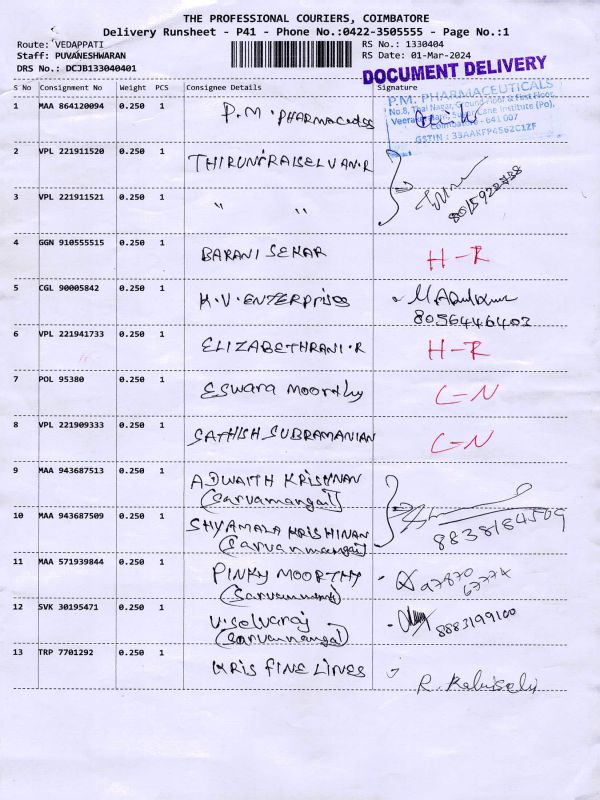 THE PROFESSIONAL COURIERS, COIMBATORE
Delivery Runsheet - P41 - Phone No.:0422-3505555 - Page No.:1
Route: VEDAPPATI
Staff: PUVANESHWARAN
DRS No.: DCJB133040401
RS No.: 1330404
RS Date: 01-Mar-2024
DOCUMENT DELIVERY
S No Consignment No Weight PCS Consignee Details Signature
P.M. PHARMACEUTICALS
No.8, Thai Nagar, Ground Floor & First Floor,
Cane Institute (Po),
Coimbatore - 641 007
GSTIN : 33AAKFP4562C1ZF
1 MAA 864120094 0.250 1 P.M. PHARMACEDSS
2 VPL 221911520 0.250 1 THIRUNIRAISELVAN.R
3 VPL 221911521 0.250 1 " "
4 GGN 910555515 0.250 1 BARANI SEKAR H-R
5 CGL 90005842 0.250 1 K.V. ENTERPRISES
8056446403
6 VPL 221941733 0.250 1 ELIZABETHRANI.R H-R
7 POL 95380 0.250 1 Eswara Moorthy C-N
8 VPL 221909333 0.250 1 SATHISH SUBRAMANIAN C-N
9 MAA 943687513 0.250 1 ADWAITH KRISHNAN
(Sarvamangal)
10 MAA 943687509 0.250 1 SHYAMALA KRISHINAN 8838184509
(Sarvanmangal)
11 MAA 571939844 0.250 1 PINKY MOORTHY 97870
67774
12 SVK 30195471 0.250 1 V.Selvaraj 8883199100
(Sarvanmangal)
13 TRP 7701292 0.250 1 KRIS FINE LINES